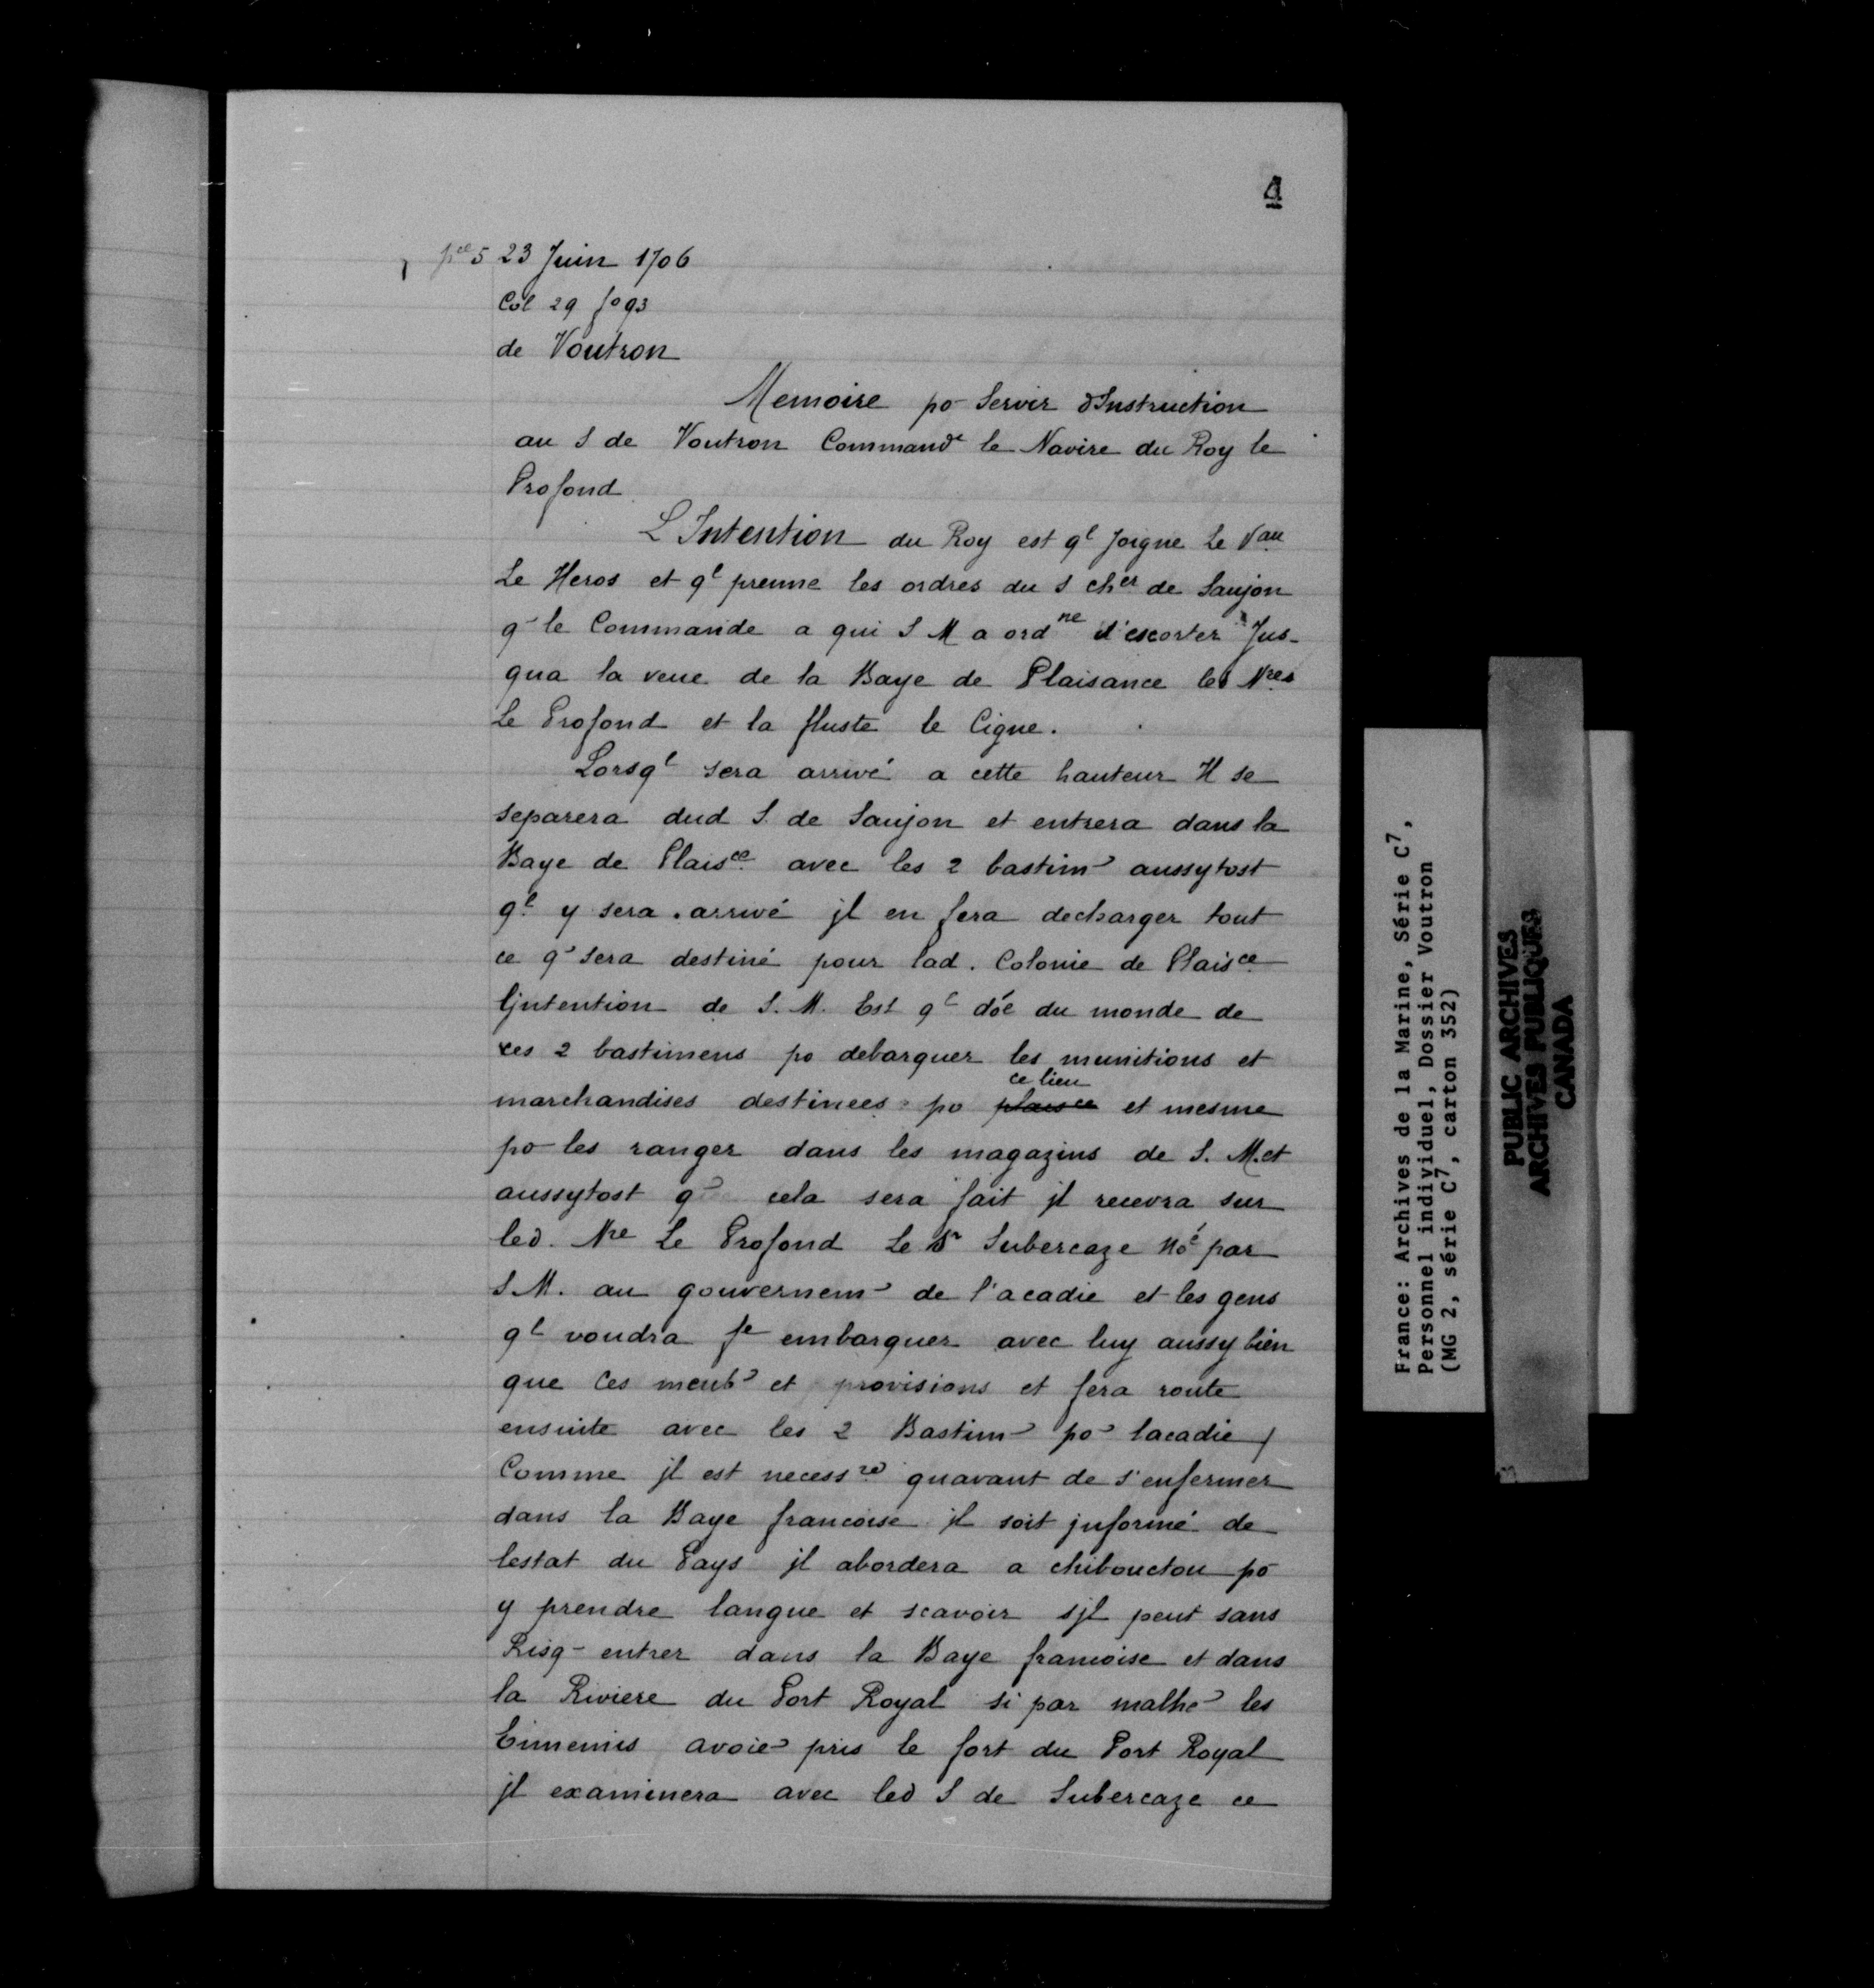 4
pce 5 23 Juin 1706
Col 29 fo 93
de Voutron
Memoire po Servir dInstruction
au S de Voutron Commandt le Navire du Roy le
Profond
L Intention du Roy est ql joigne le Vau
Le Heros et ql prenne les ordres du S cher de Saujon
q le Commande a qui S M a ordne d'escorter Jus-
qua la veue de la Baye de Plaisance les Nres
Le Profond et la fluste le Cigne.
Lorsql sera arrivé a cette hauteur Il se
separera dud S. de Saujon et entrera dans la
Baye de Plaisce avec les 2 bastim aussytost
ql y sera arrivé jl en fera decharger tout
ce q sera destiné pour lad. Colonie de Plaisce
Ljntention de S. M. Est ql dóe du monde de
ces 2 bastimens po debarquer les munitions et
marchandises destinees po plaisce ce lieu et mesme
po les ranger dans les magazins de S. M. et
aussytost q cela sera fait jl recevra sur
led. Nre Le Profond Le Sr Subercaze Nóé par
S M. au gouvernem de l'acadie et les gens
ql voudra fe embarquer avec luy aussy bien
que Ces meub et provisions et fera route
ensuite avec les 2 Bastim po lacadie /
Comme jl est necessre quavant de s'enfermer
dans la Baye francoise jl soit jnformé de
lestat du Pays jl abordera a chibouctou po
y prendre langue et scavoir sjl peut sans
Risq entrer dans la Baye francoise et dans
la Riviere du Port Royal si par malhe les
Ennemis avoie pris le fort du Port Royal
jl examinera avec led S de Subercaze ce
France: Archives de la Marine, Série C7,
Personnel individuel, Dossier Voutron
(MG 2, série C7, carton 352)
PUBLIC ARCHIVES
ARCHIVES PUBLIQUES
CANADA